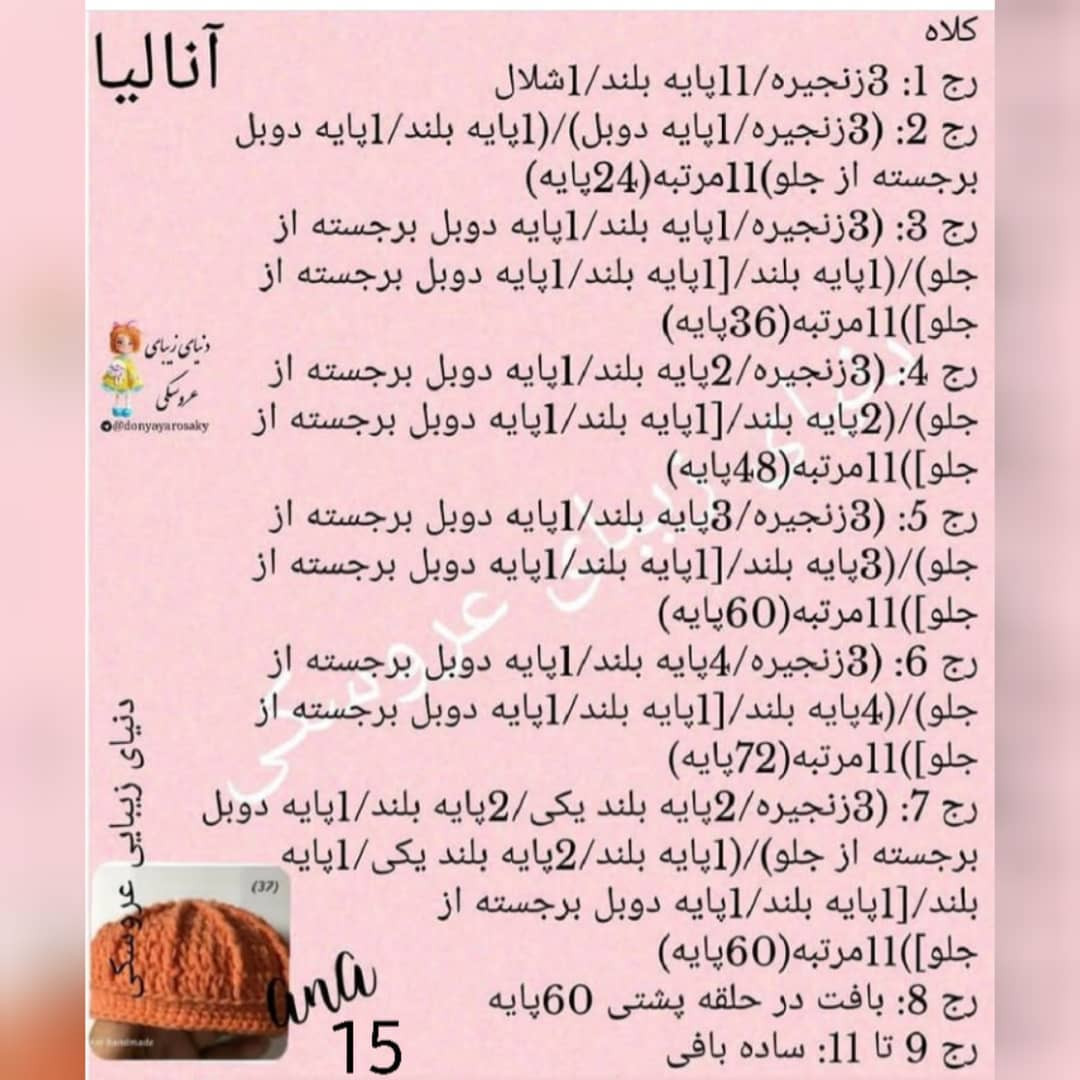 آنالیا
کلاه
رج 1: 3زنجیره/11پایه بلند/1شلال
رج 2: (3زنجیره/1پایه دوبل)/(1پایه بلند/1پایه دوبل
برجسته از جلو)11مرتبه(24پایه)
رج 3: (3زنجیره/1پایه بلند/1پایه دوبل برجسته از
جلو)/(1پایه بلند/[1پایه بلند/1پایه دوبل برجسته از
جلو])11مرتبه(36پایه)
رج 4: (3زنجیره/2پایه بلند/1پایه دوبل برجسته از
جلو)/(2پایه بلند/[1پایه بلند/1پایه دوبل برجسته از
جلو])11مرتبه(48پایه)
رج 5: (3زنجیره/3پایه بلند/1پایه دوبل برجسته از
جلو)/(3پایه بلند/[1پایه بلند/1پایه دوبل برجسته از
جلو])11مرتبه(60پایه)
رج 6: (3زنجیره/4پایه بلند/1پایه دوبل برجسته از
جلو)/(4پایه بلند/[1پایه بلند/1پایه دوبل برجسته از
جلو])11مرتبه(72پایه)
رج 7: (3زنجیره/2پایه بلند یکی/2پایه بلند/1پایه دوبل
برجسته از جلو)/(1پایه بلند/2پایه بلند یکی/1پایه
بلند/[1پایه بلند/1پایه دوبل برجسته از
جلو])11مرتبه(60پایه)
رج 8: بافت در حلقه پشتی 60پایه
رج 9 تا 11: ساده بافی
دنیای زیبای
عروسکی
@donyayarosaky
دنیای زیبای عروسکی
دنیای زیبایی عروسکی
(37)
handmade
ana
15